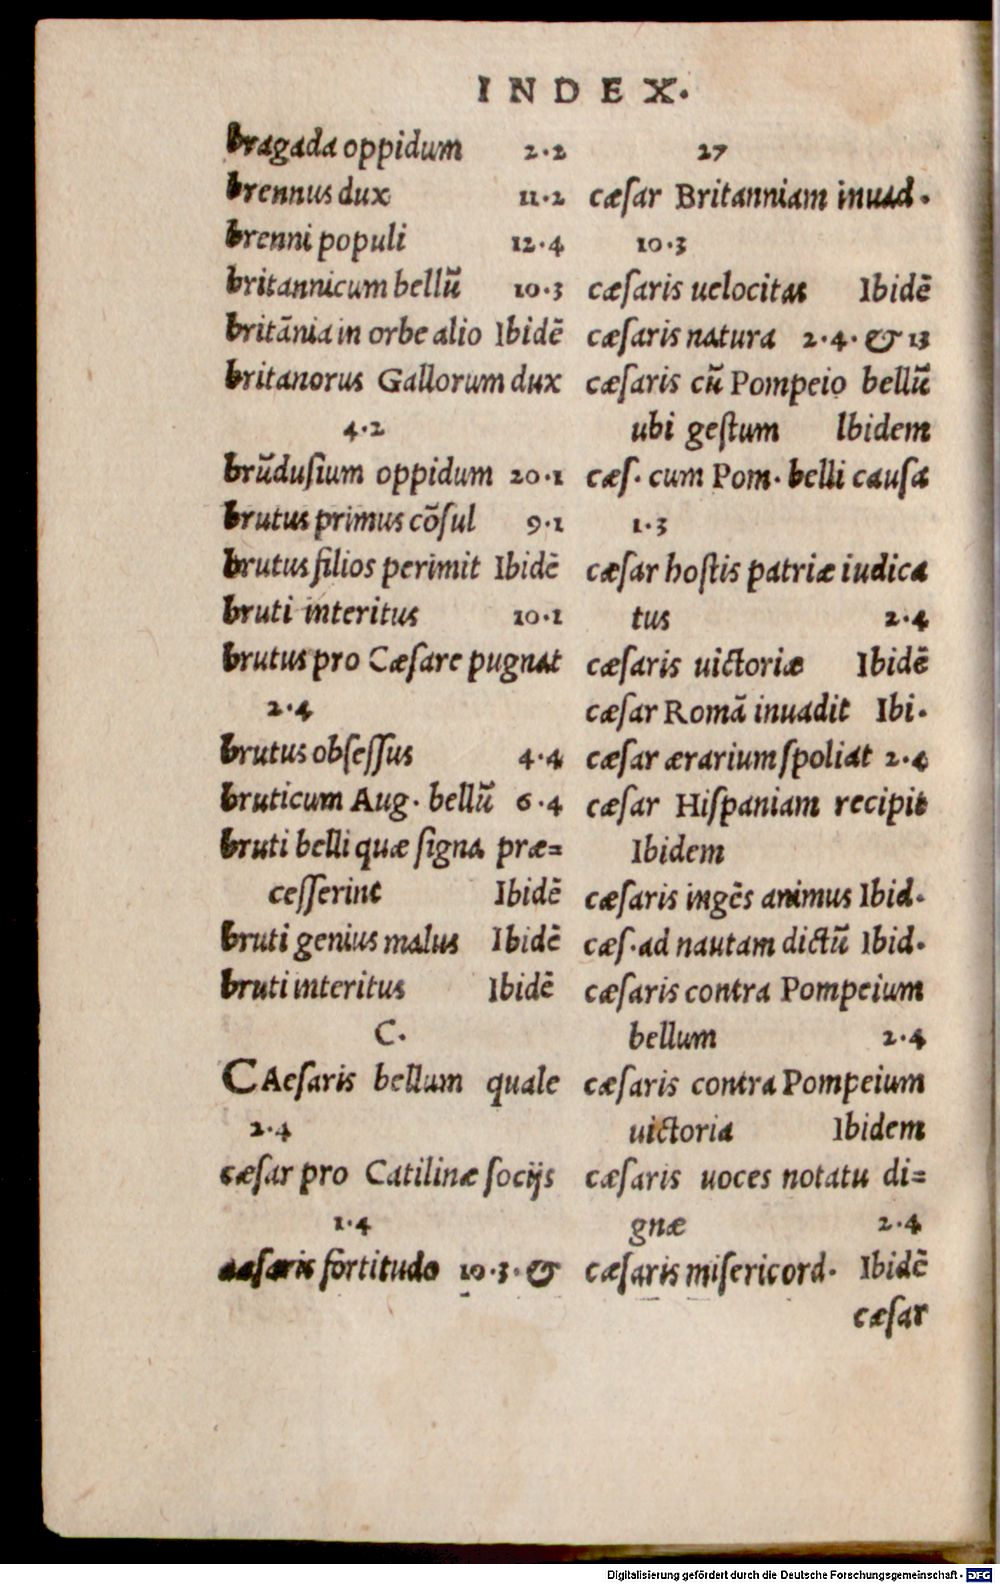 INDEX.
bragada oppidum 2.2
brennus dux 11.2
brenni populi 12.4
britannicum bellũ 10.3
britãnia in orbe alio Ibidẽ
britanorus Gallorum dux
4.2
brũdusium oppidum 20.1
brutus primus cõsul 9.1
brutus filios perimit Ibidẽ
bruti interitus 10.1
brutus pro Cæsare pugnat
2.4
brutus obsessus 4.4
bruticum Aug. bellũ 6.4
bruti belli quæ signa præ=
cesserint Ibidẽ
bruti genius malus Ibidẽ
bruti interitus Ibidẽ
C.
CAesaris bellum quale
2.4
cæsar pro Catilinæ socijs
1.4
cæsaris fortitudo 10.3. &
27
cæsar Britanniam inuad.
10.3
cæsaris uelocitas Ibidẽ
cæsaris natura 2.4. & 13
cæsaris cũ Pompeio bellũ
ubi gestum Ibidem
cæs. cum Pom. belli causa
1.3
cæsar hostis patriæ iudica
tus 2.4
cæsaris uictoriæ Ibidẽ
cæsar Romã inuadit Ibi.
cæsar ærarium spoliat 2.4
cæsar Hispaniam recipit
Ibidem
cæsaris ingẽs animus Ibid.
cæs. ad nautam dictũ Ibid.
cæsaris contra Pompeium
bellum 2.4
cæsaris contra Pompeium
uictoria Ibidem
cæsaris uoces notatu di=
gnæ 2.4
cæsaris misericord. Ibidẽ
cæsar
Digitalisierung gefördert durch die Deutsche Forschungsgemeinschaft - DFG